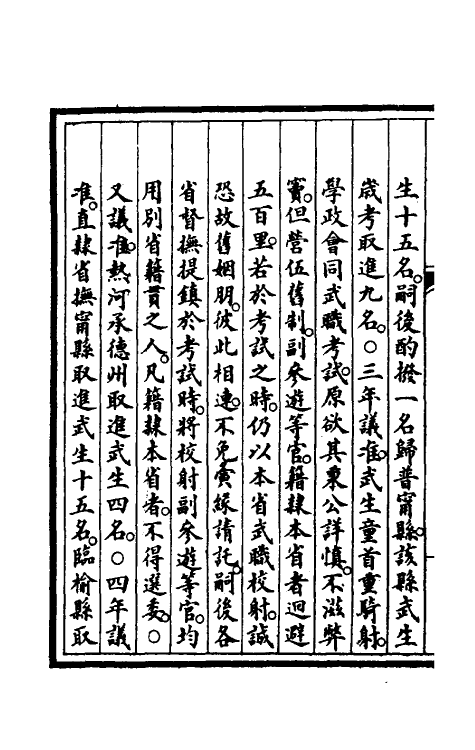 生十五名。嗣後酌撥一名歸普甯縣。該縣武生
歲考取進九名。○三年議准。武生童首重騎射。
學政會同武職考試。原欲其秉公詳慎。不滋弊
竇。但營伍舊制。副參遊等官。籍隸本省者迴避
五百里。若於考試之時。仍以本省武職校射。誠
恐故舊姻朋。彼此相連。不免夤緣請託。嗣後各
省督撫提鎮於考試時。將校射副參遊等官。均
用別省籍貫之人。凡籍隸本省者。不得選委。○
又議准。熱河承德州取進武生四名。○四年議
准。直隸省撫甯縣取進武生十五名。臨榆縣取